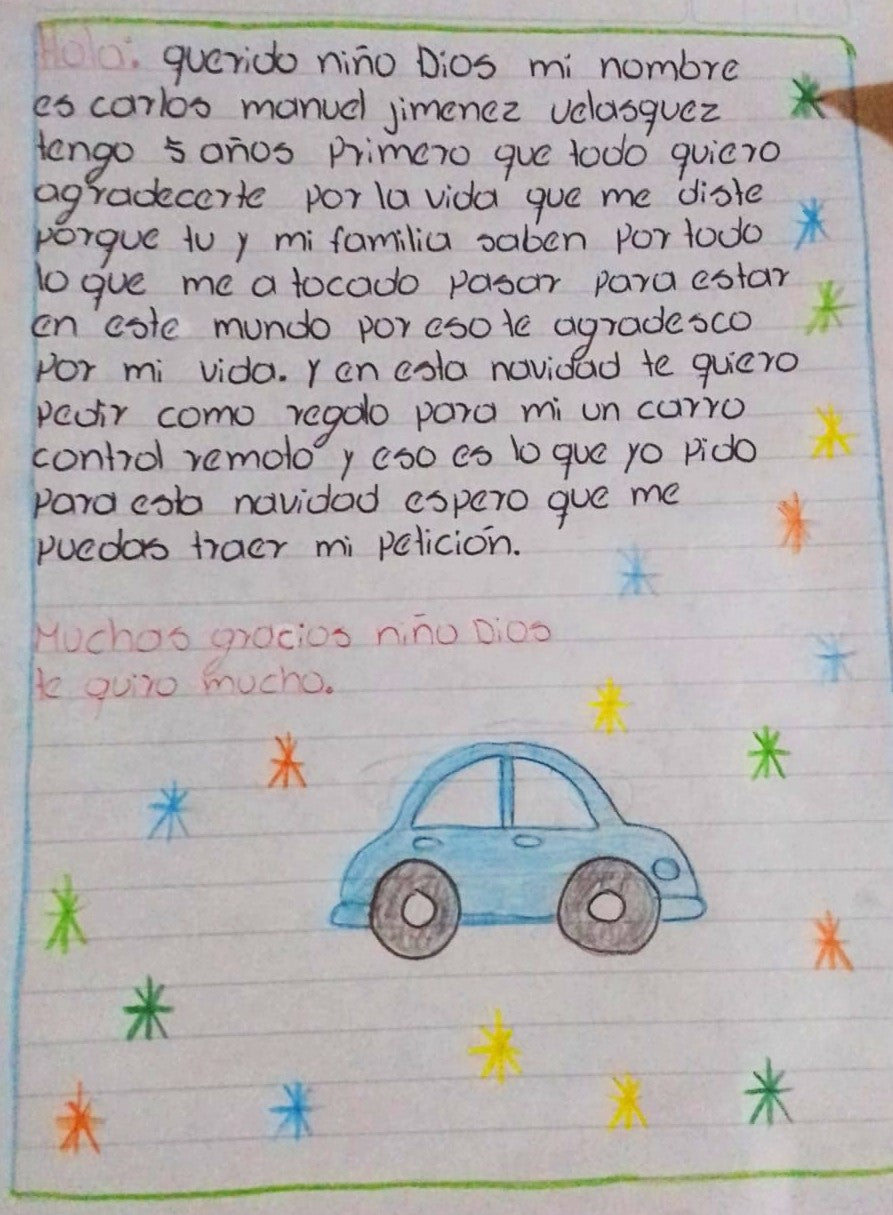 Hola: querido niño Dios mi nombre
es carlos manuel jimenez velasquez
tengo 5 años primero que todo quiero
agradecerte por la vida que me diste
porque tu y mi familia saben por todo
lo que me a tocado pasar para estar
en este mundo por eso te agradesco
por mi vida. y en esta navidad te quiero
pedir como regalo para mi un carro
control remoto y eso es lo que yo pido
para esta navidad espero que me
puedas traer mi petición.
Muchas gracias niño Dios
te quiro mucho.